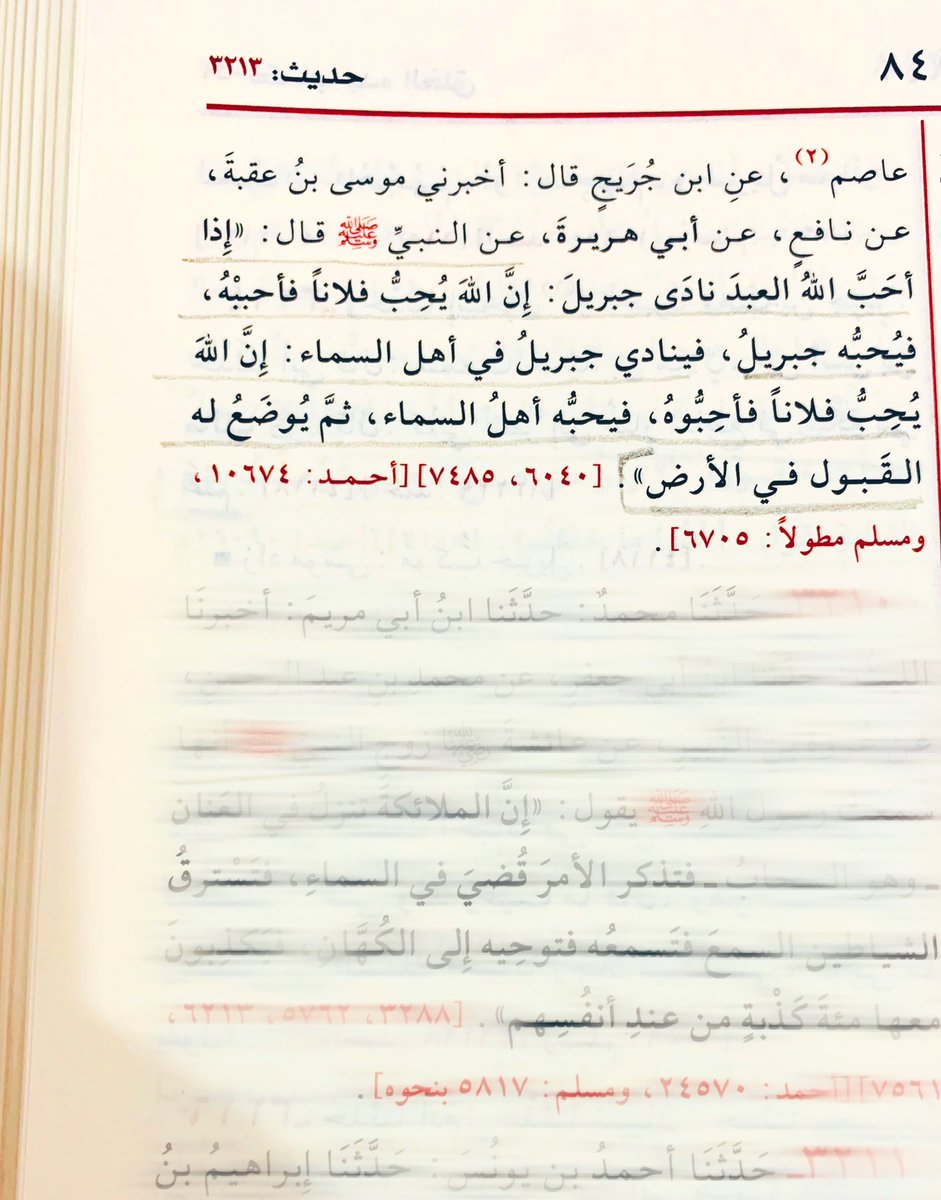 ٨٤ حديث: ٣٢١٣
عاصم(٢)، عنِ ابن جُرَيجٍ قال: أخبرني موسى بنُ عقبةَ،
عن نافعٍ، عن أبي هريرةَ، عن النبيِّ ﷺ قال: «إِذا
أحَبَّ اللهُ العبدَ نادَى جبريلَ: إِنَّ اللهَ يُحِبُّ فلاناً فأحببْهُ،
فيُحبُّه جبريلُ، فينادي جبريلُ في أهل السماء: إِنَّ اللهَ
يُحِبُّ فلاناً فأحِبُّوهُ، فيحبُّه أهلُ السماء، ثمَّ يُوضَعُ له
القَبول في الأرض». [٦٠٤٠، ٧٤٨٥] [أحمد: ١٠٦٧٤،
ومسلم مطولاً: ٦٧٠٥].
٣٢١٠ حَدَّثَنَا محمدٌ: حدَّثَنا ابنُ أبي مريمَ: أخبرنَا
الليثُ: حدَّثَنا ابن أبي جعفرٍ، عن محمدِ بنِ عبد الرحمنِ،
عن عائشةَ زوجِ النبيِّ ﷺ أنها
سمعتْ رسولَ اللهِ ﷺ يقول: «إِنَّ الملائكةَ تنزلُ في العَنان
ـ وهو السحابُ ـ فتذكر الأمرَ قُضيَ في السماءِ، فتَسْترقُ
الشياطين السمعَ فتَسمعُه فتوحِيه إِلى الكُهَّانِ، فيَكذِبونَ
معها مئةَ كَذْبةٍ من عندِ أنفُسِهم». [٣٢٨٨، ٥٧٦٢، ٦٢١٣،
٧٥٦١] [أحمد: ٢٤٥٧٠، ومسلم: ٥٨١٧ بنحوه].
٣٢١١ـ حَدَّثَنَا أحمدُ بن يونُسَ: حَدَّثَنَا إِبراهيمُ بنُ